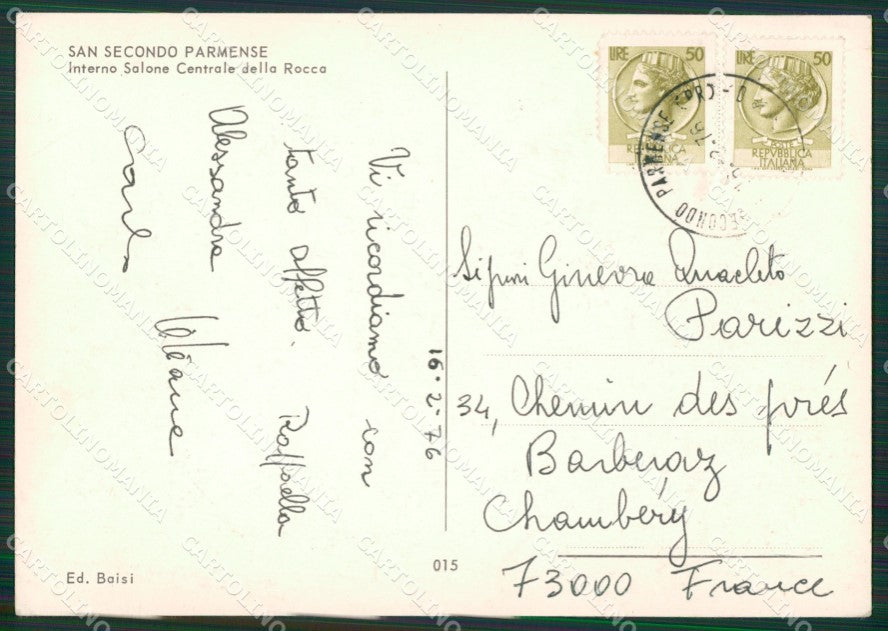 SAN SECONDO PARMENSE
Interno Salone Centrale della Rocca
LIRE 50
REPVBBLICA
ITALIANA
LIRE 50
POSTE
REPVBBLICA
ITALIANA
SECONDO PARMENSE (PR)
Vi ricordiamo con
tanto affetto. Raffaella
Alessandra
Carlo
16.2.76
Ginevra Anacleto
Parizzi
34, Chemin des prés
Barberaz
Chambéry
73000 France
Ed. Baisi
015
CARTOLINOMANIA